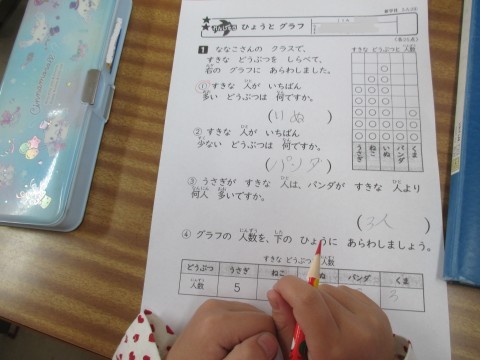 ひょうと グラフ
1 ななこさんの クラスで、
すきな どうぶつを しらべて、
右の グラフに あらわしました。
① すきな 人が いちばん
多い どうぶつは 何ですか。
(いぬ)
② すきな 人が いちばん
少ない どうぶつは 何ですか。
(パンダ)
③ うさぎが すきな 人は、パンダが すきな 人より
何人 多いですか。
(3人)
④ グラフの 人数を、下の ひょうに あらわしましょう。
すきな どうぶつと 人数
うさぎ ねこ いぬ パンダ くま
すきな どうぶつと 人数
どうぶつ うさぎ ねこ いぬ パンダ くま
人数 5 3